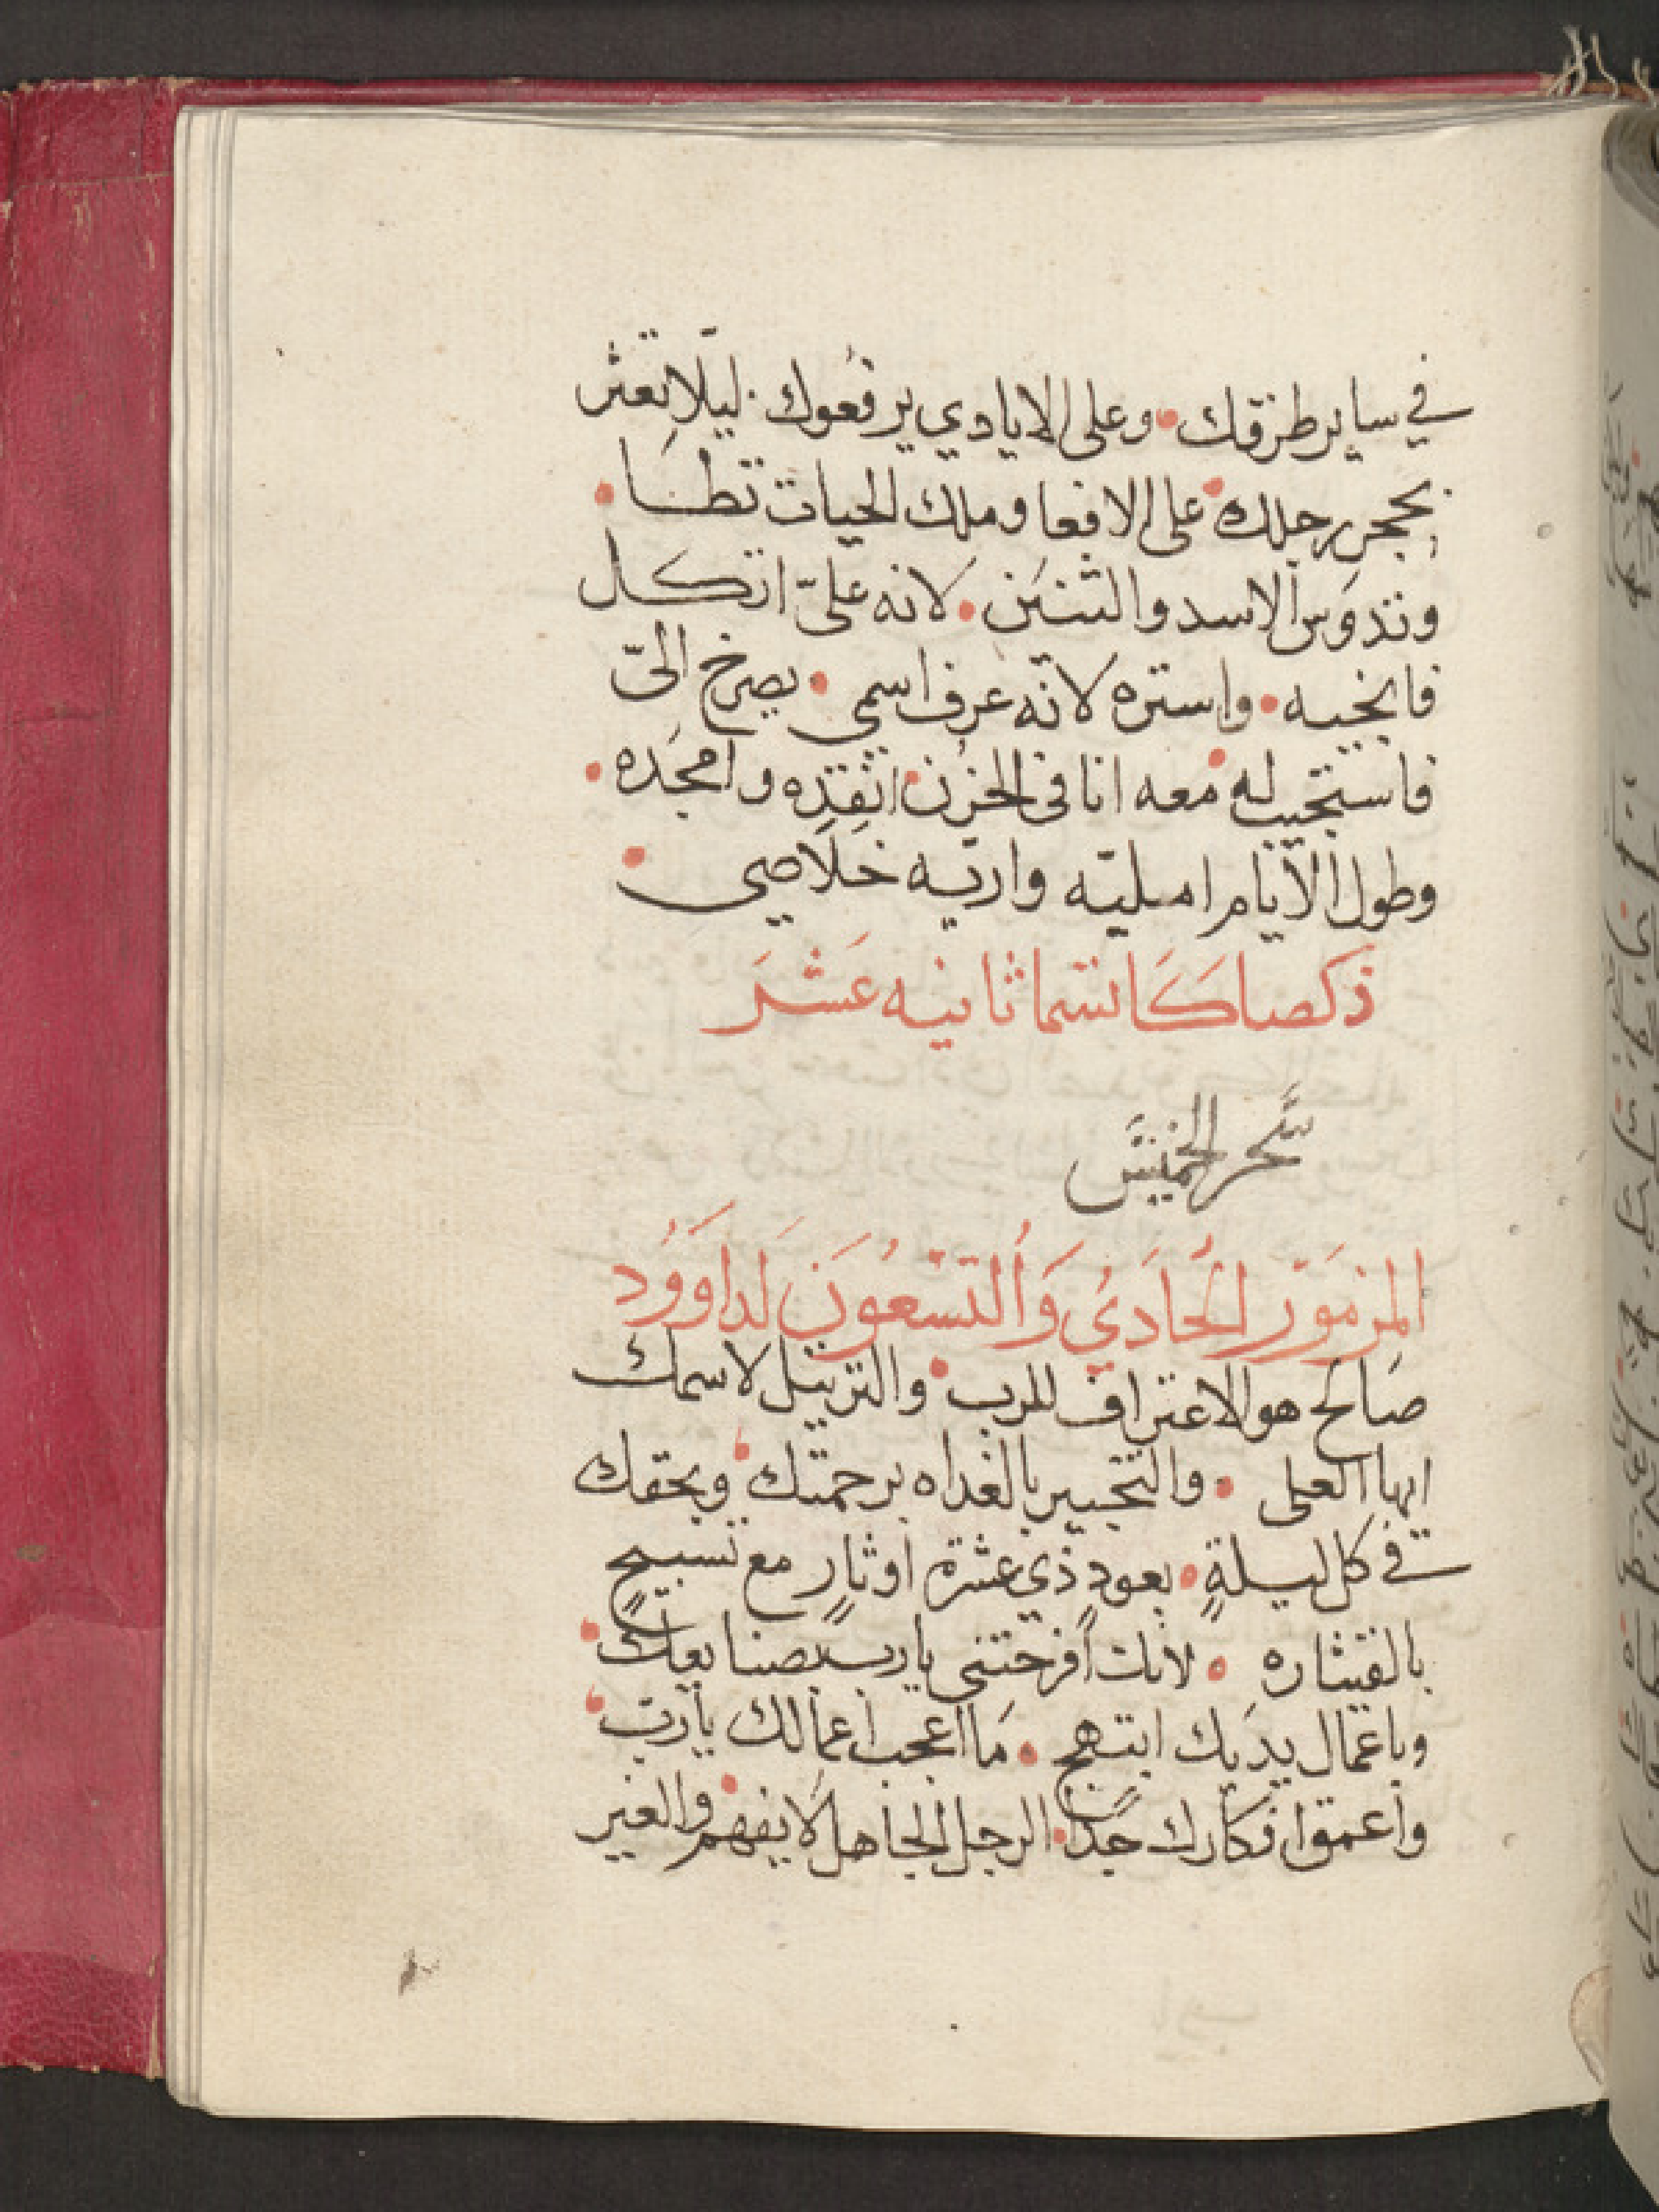 في ساير طرقك • وعلى الايادي يرفعوك. ليلا تعثر
بحجر رجلك • على الافعا وملك الحيات تطا •
وتدوس الاسد والتنين • لانه عليّ اتكل
فانجيه • واستره لانه عرف اسمي • يصرخ اليّ
فاستجيب له • معه انا في الحزن • انقذه وامجّده •
وطول الأيام امليّه واريّه خلاصي •
ذكصا كانسما ثانيه عشر
سَحر الخميسَ
المزمَور الحَاديُ وَالتسْعُونَ لداوَوُد
صَالح هو الاعتراف للرب • والترتيل لاسمك
ايها العلى • والتخبير بالغداه برحمتك • وبحقك
في كل ليلةٍ • بعودٍ ذي عشرة اوثارٍ مع تسبيحٍ
بالقيثاره • لانك أفرحتني يارب بصنايعك •
وباعمال يدَيك ابتهج • مَا اعجب اعمالك يارب •
واعمق افكارك جدًا • الرجل الجاهل لا يفهم • والغير